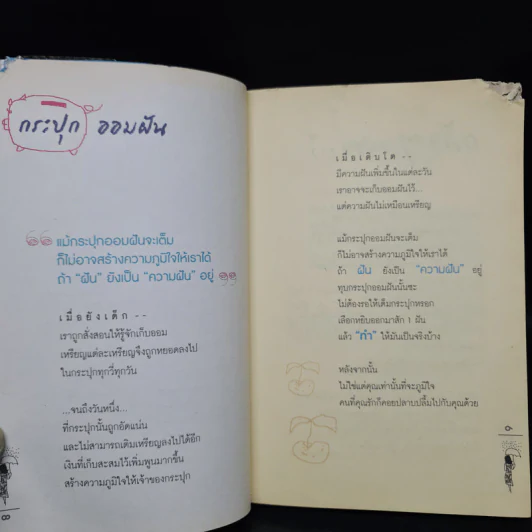 กระปุก ออมฝัน
แม้กระปุกออมฝันจะเต็ม
ก็ไม่อาจสร้างความภูมิใจให้เราได้
ถ้า "ฝัน" ยังเป็น "ความฝัน" อยู่
เมื่อยังเด็ก --
เราถูกสั่งสอนให้รู้จักเก็บออม
เหรียญแต่ละเหรียญจึงถูกหยอดลงไป
ในกระปุกทุกวี่ทุกวัน
...จนถึงวันหนึ่ง...
ที่กระปุกนั้นถูกอัดแน่น
และไม่สามารถเติมเหรียญลงไปได้อีก
เงินที่เก็บสะสมไว้เพิ่มพูนมากขึ้น
สร้างความภูมิใจให้เจ้าของกระปุก
8
เมื่อเติบโต --
มีความฝันเพิ่มขึ้นในแต่ละวัน
เราอาจจะเก็บออมฝันไว้...
แต่ความฝันไม่เหมือนเหรียญ
แม้กระปุกออมฝันจะเต็ม
ก็ไม่อาจสร้างความภูมิใจให้เราได้
ถ้า ฝัน ยังเป็น "ความฝัน" อยู่
ทุบกระปุกออมฝันนั้นซะ
ไม่ต้องรอให้เต็มกระปุกหรอก
เลือกหยิบออกมาสัก 1 ฝัน
แล้ว "ทำ" ให้มันเป็นจริงบ้าง
หลังจากนั้น
ไม่ใช่แค่คุณเท่านั้นที่จะภูมิใจ
คนที่คุณรักก็คอยปลาบปลื้มไปกับคุณด้วย
9